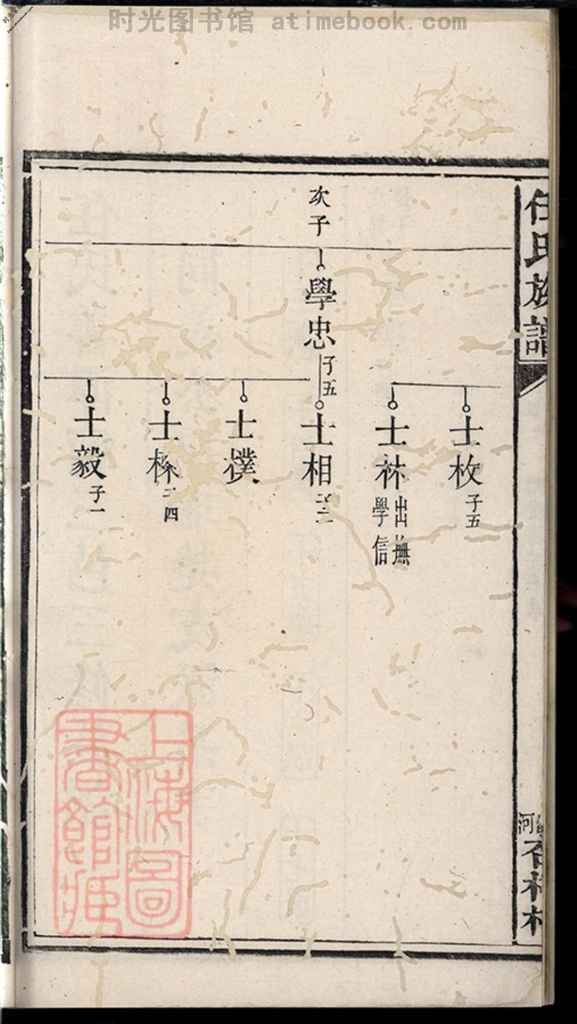 时光图书馆 atimebook.com
任氏族譜
次子
學忠 子五
士枚 子五
士林 出撫學信
士相 子二
士樸
士 子四
士毅 子一
河
村
上海圖書館藏